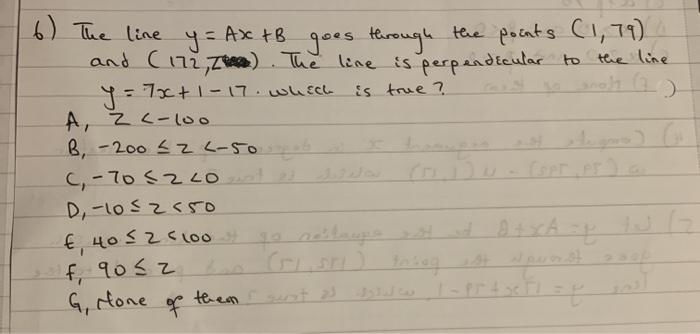 6) The line y = Ax + B goes through the points (1, 79)
and (172, Z). The line is perpendicular to the line
y = 7x + 1 - 17. which is true?
A, Z < -100
B, -200 ≤ Z < -50
C, -70 ≤ Z < 0
D, -10 ≤ Z < 50
E, 40 ≤ Z ≤ 100
F, 90 ≤ Z
G, None of them